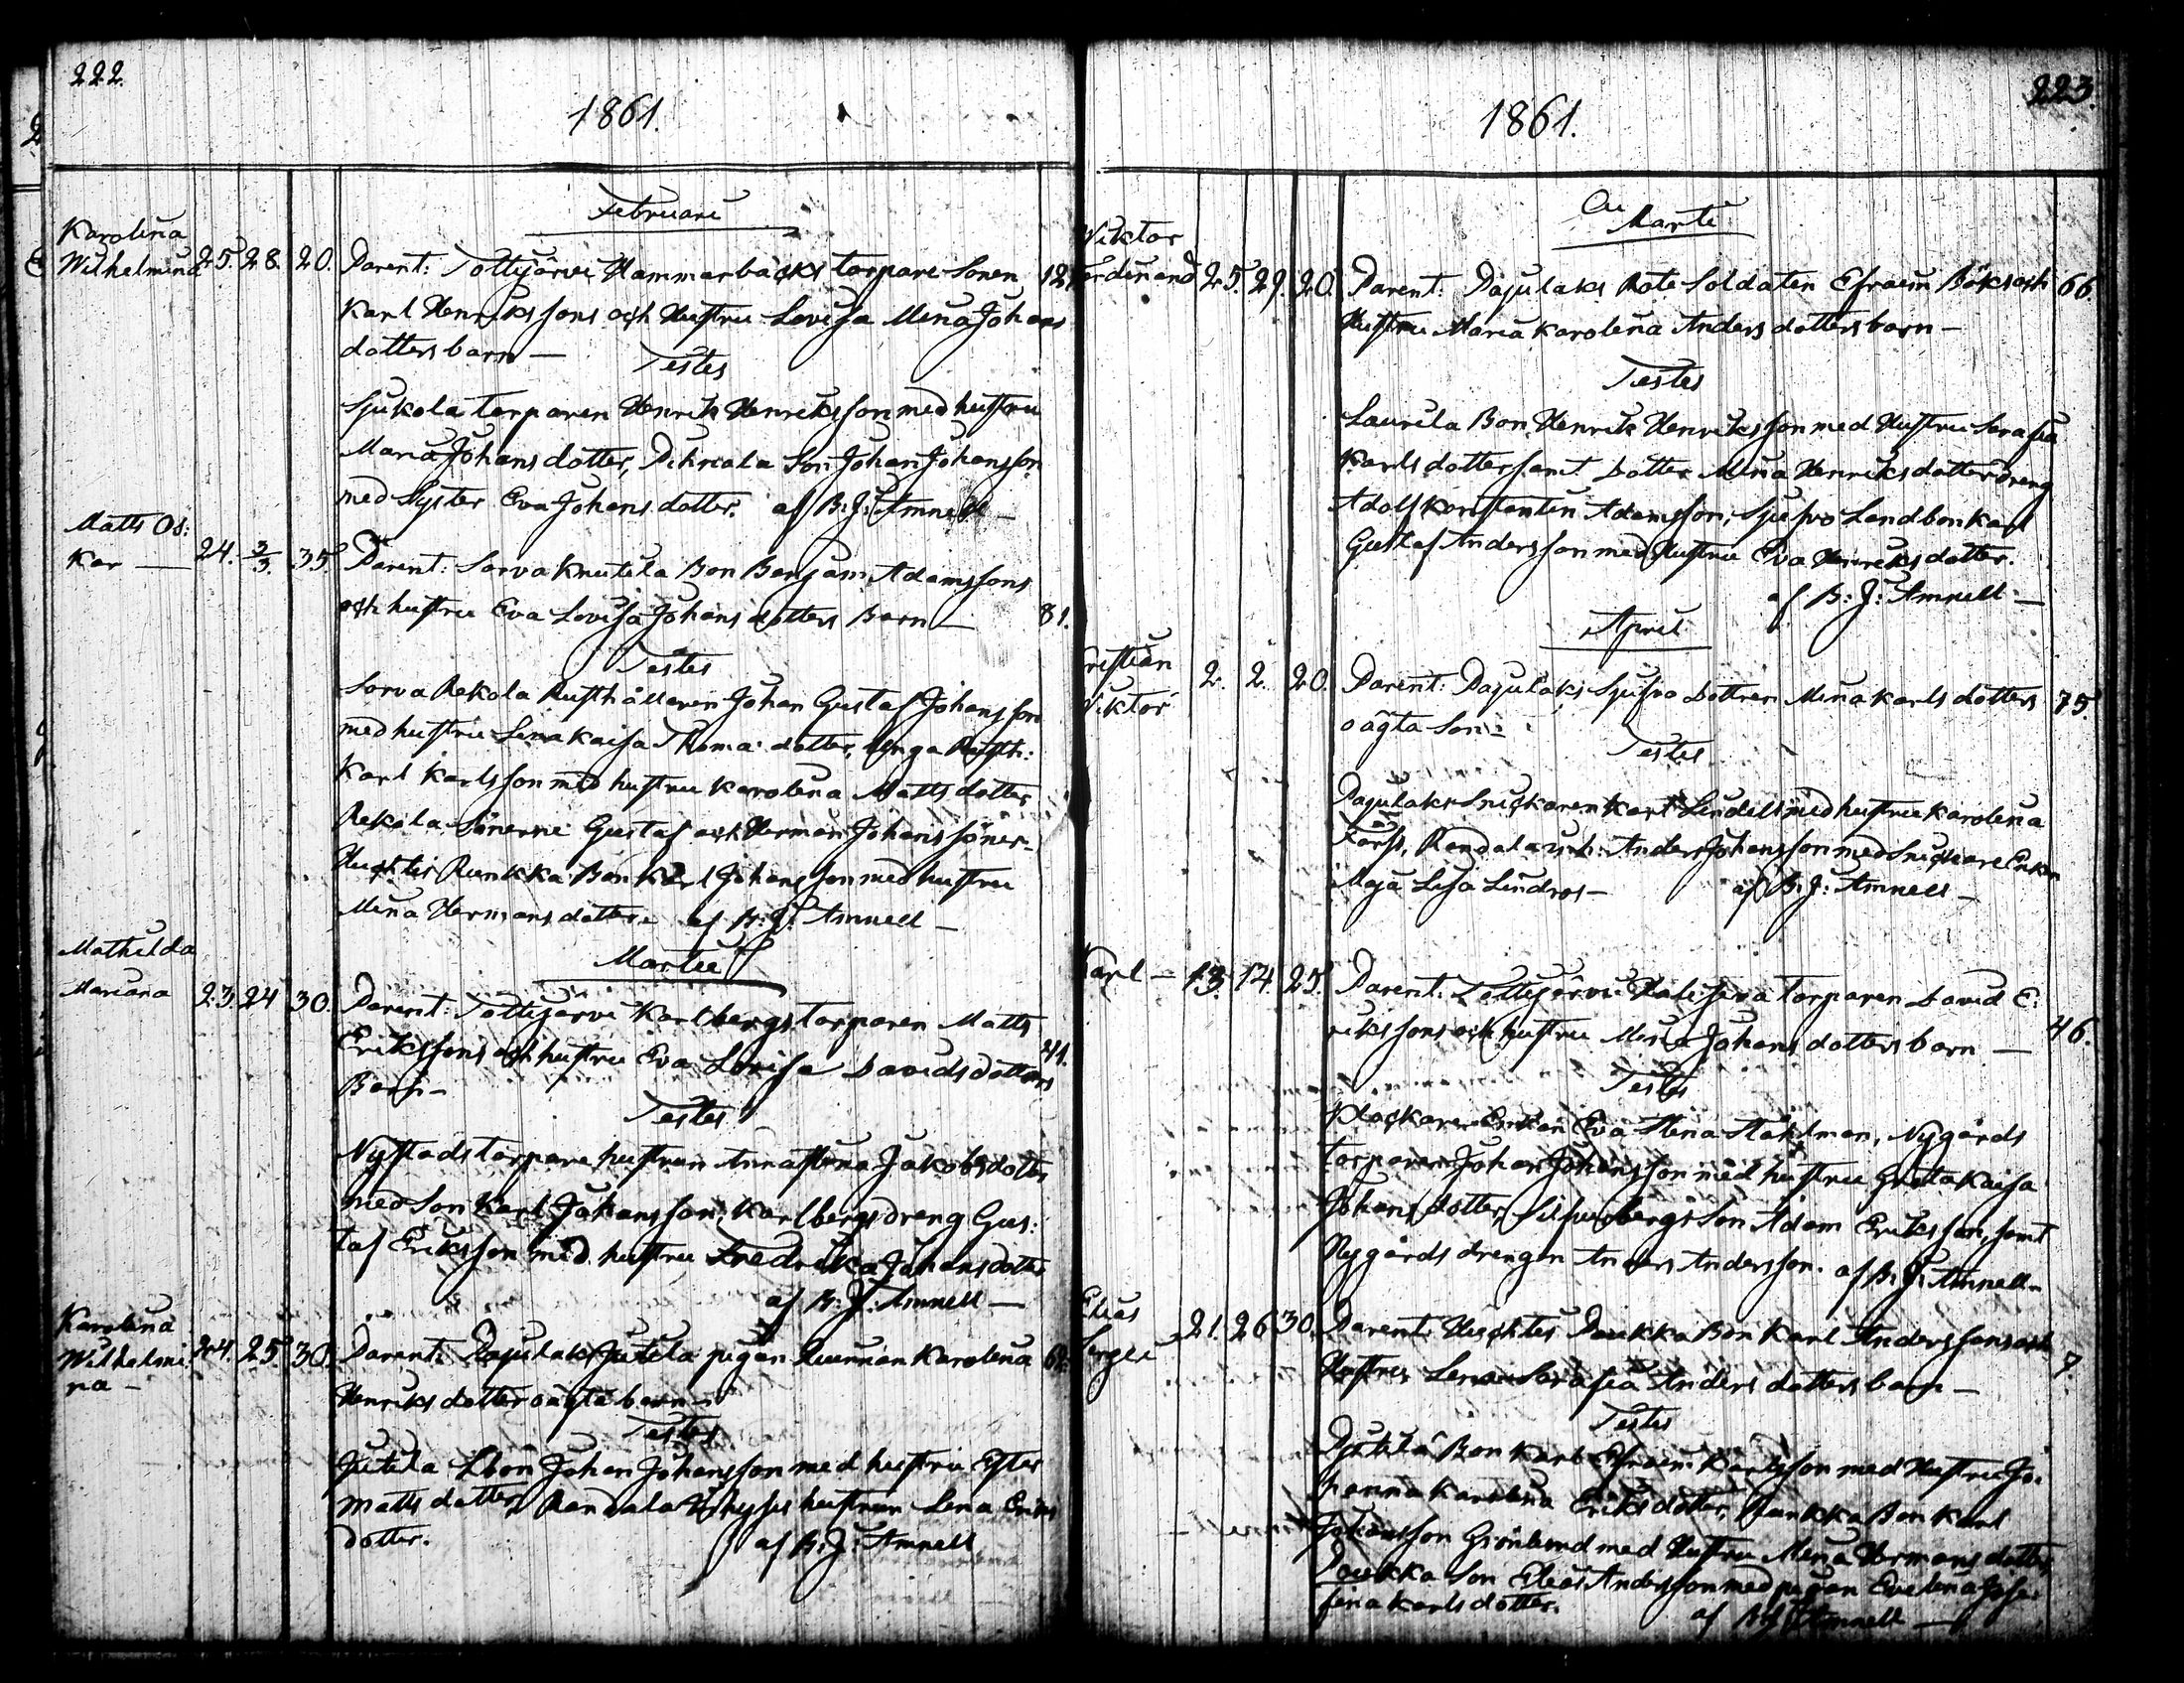 222.
1861.
Februari
Karolina
Wilhelmina 25. 28. 20. Parent: Tottijärvi Hammarbäcks torpare Sonen 12.
Karl Henrikssons och Hustru Lovisa Mina Johans
dotters barn —
Testes
Sjukola torparen Henrik Henriksson med hustru
Maria Johansdotter, Son Johan Johansson
med Syster Eva Johansdotter. af B: J: Amnell —
Matts Os:
kar — 24. 3/3. 35. Parent: Sorva Knutila Bon Benjam: Adamssons
och hustru Eva Lovisa Johansdotters Barn — 81.
Testes
Sorva Rekola Rusthållaren Johan Gustaf Johansson
med hustru Lena Kaisa Thomædotter, unga Rusth:
Karl Karlsson med hustru Karolina Mattsdotter
Rekola Sönerne Gustaf och Herman Johanssöner
Huchtis Runkka Bon Karl Johansson med hustru
Mina Hermansdotter. af B: J: Amnell —
Martii
Mathilda
Mariana 23. 24 30. Parent: Tottijärvi Karlbergs torparen Matts
Erikssons och hustru Eva Lovisa Davidsdotters 41.
Barn —
Testes
Nystads torpare hustrun Anna Stina Jakobsdotter
med Son Karl Johansson, Karlbergs dreng Gus:
taf Eriksson med hustru Fredrika Johansdotter
af B: J: Amnell —
Karolina
Wilhelmi: 24. 25. 30. Parent: Pajulaks Jutila pigan Karolina
na —
Henriksdotter oägta barn —
Testes
Jutila Lbon Johan Johansson med hustru Ester
Mattsdotter, Randala hustrun Lena Eriks
dotter. af B: J: Amnell
223.
1861.
Martii
Viktor
Ferdinand 25. 29. 20. Parent: Pajulaks Rote Soldaten Efraim Böks och 66.
Hustru Maria Karolina Andersdotters barn —
Testes
Laurila Bon Henrik Henriksson med Hustru Serafia
Karlsdotter samt Dotter Mina Henriksdotter dreng
Adolf Konstantin Adamsson, Landbon Karl
Gustaf Andersson med Hustru Eva Henriksdotter.
af B: J: Amnell —
April
Kristian
Viktor 2. 2. 20. Parent: Pajulaks Dottren Mina Karlsdotters 75.
oägta Son —
Testes
Pajulaks Snickaren Karl Lindell med hustru Karolina
Fors, Randala Anders Johansson med Snickare Enkan
Maja Lisa Lindros — af B: J: Amnell —
Karl — 13. 14. 25. Parent: Tottijärvi torparen David E:
rikssons och hustru Mina Johansdotters barn — 46.
Testes
Klockare Enkan Eva Stina Ståhlman, Nygårds
torparen Johan Johansson med hustru Greta Kaisa
Johansdotter, Silfverbergs Son Adam Eriksson, samt
Nygårds drengen Anders Andersson. af B: J: Amnell —
Elias
Sergei 21. 26 30. Parent: Huchtis Paukka Bon Karl Anderssons och 7
Hustru Lena Serafia Andersdotters barn —
Testes
Bon Karl Efraim Karlsson med Hustru Jo:
hanna Karolina Eriksdotter, Runkka Bon Karl
Johansson Grönlund med Hustru Mina Hermansdotter,
Paukka Son Elias Andersson med pigan Evelina Jose:
fina Karlsdotter. af B: J: Amnell —